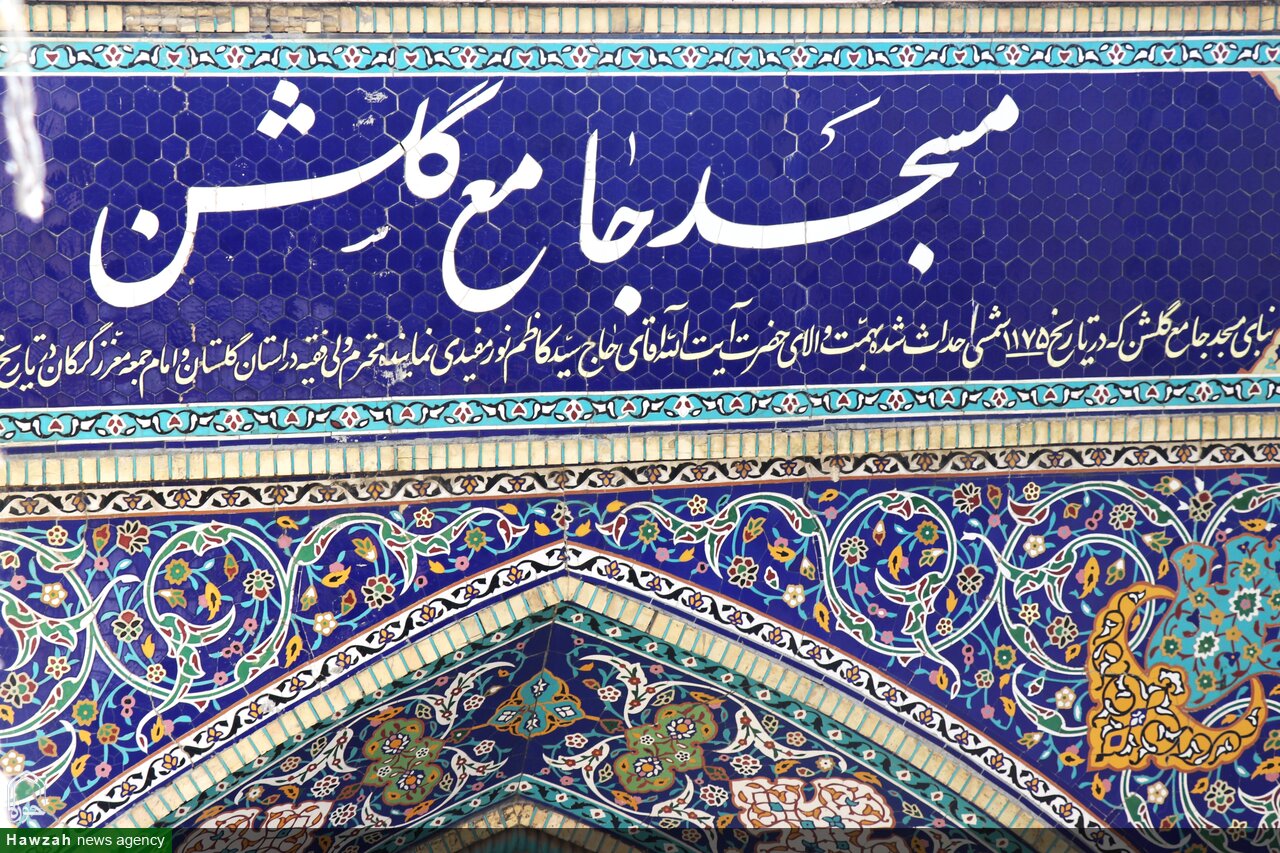 مسجد جامع گلشن
بنای مسجد جامع گلشن که در تاریخ ۱۱۷۵ شمسی احداث شده بهمّت والای حضرت آیت الله آقای حاج سیّد کاظم نورمفیدی نماینده محترم ولی فقیه در استان گلستان و امام جمعه معزّز گرگان در تاریخ
Hawzah news agency